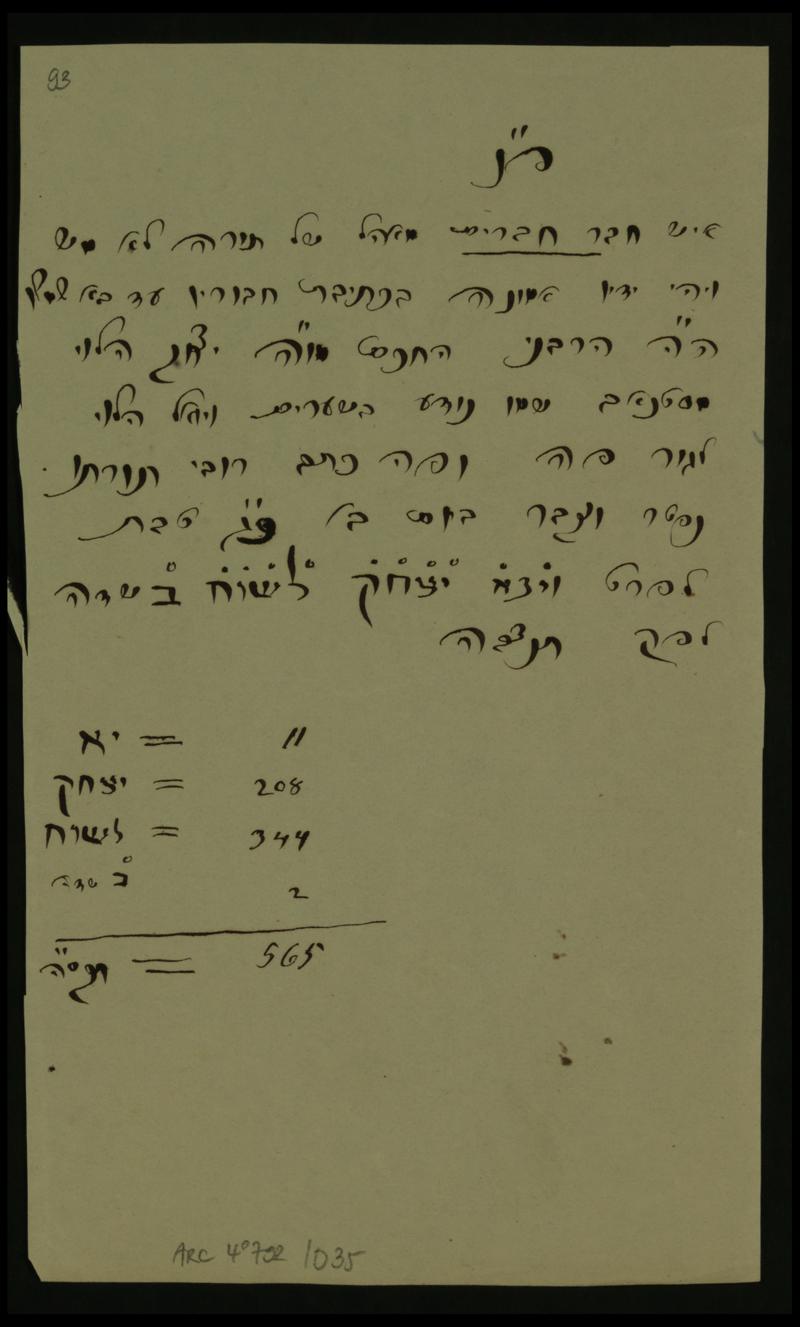 93
פ"נ
איש חבר חברים מאהל של תורה לא מש
ויהי ידיו אמונה בכתיבת חבורין עד בא
ה"ה הרבני החכם מו"ה יצחק הלוי
מסטנאב שמו נודע בשערים ויגאל הלוי
לגור פה ופה כתב רובי תורתו
נפטר ונקבר ביום ב' כ"ג טבת
לפרט ויצא יצחק לשוח בשדה
לפק תנצבה
11 = יא
208 = יצחק
344 = לשוח
2 ב שדה
565 = תקס"ה
ARC 4° 792 /035